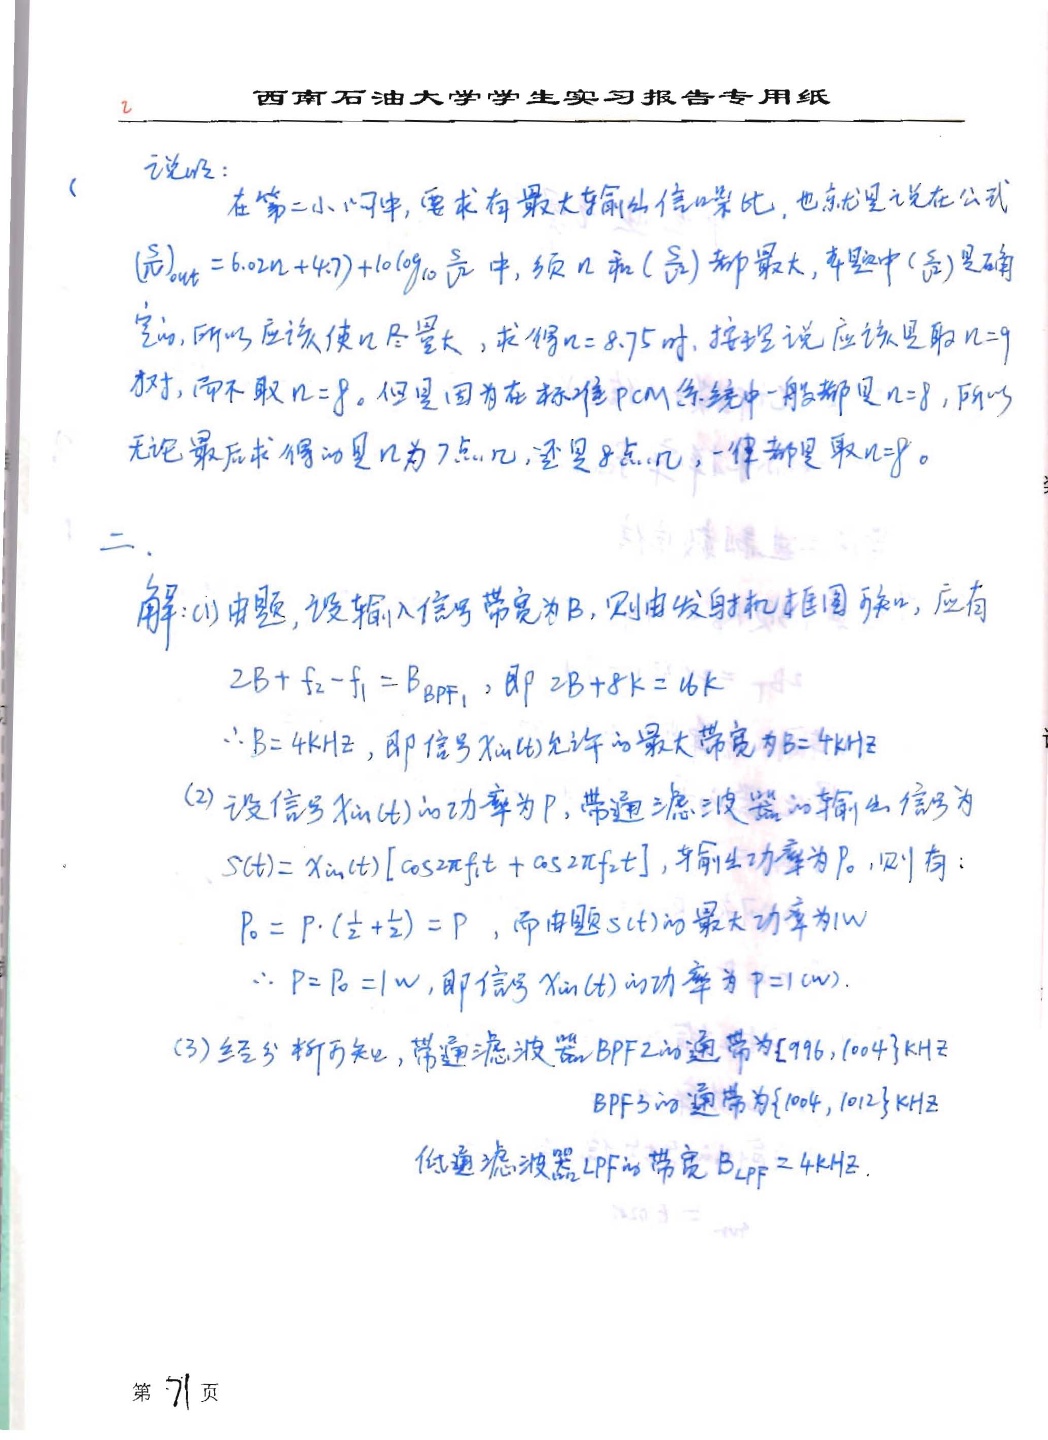 2
西南石油大学学生实习报告专用纸
说明：
在第二小问中，要求有最大输出信噪比，也就是说在公式
(S/N)out = 6.02n+4.77+10log10 S² 中，须n和(S²)都最大，本题中(S²)是确
定的，所以应该使n尽量大，求得n=8.75时，按理说应该是取n=9
才对，而不取n=8。但是因为在标准PCM系统中一般都是n=8，所以
无论最后求得的是n为7点几，还是8点几，一律都是取n=8。
二．
解：(1)由题，设输入信号带宽为B，则由发射机框图可知，应有
2B+f₂-f₁=B_BPF₁，即 2B+8K=16K
∴B=4KHZ，即信号Xin(t)允许的最大带宽为B=4KHZ
(2)设信号Xin(t)的功率为P，带通滤波器的输出信号为
S(t)=Xin(t)[cos2πf₁t+cos2πf₂t]，输出功率为P₀，则有：
P₀=P·(1/2+1/2)=P，而由题S(t)的最大功率为1W
∴P=P₀=1W，即信号Xin(t)的功率为P=1(W).
(3)经分析可知，带通滤波器BPF2的通带为{996,1004}KHZ
BPF3的通带为{1004,1012}KHZ
低通滤波器LPF的带宽B_LPF=4KHZ.
第 71 页